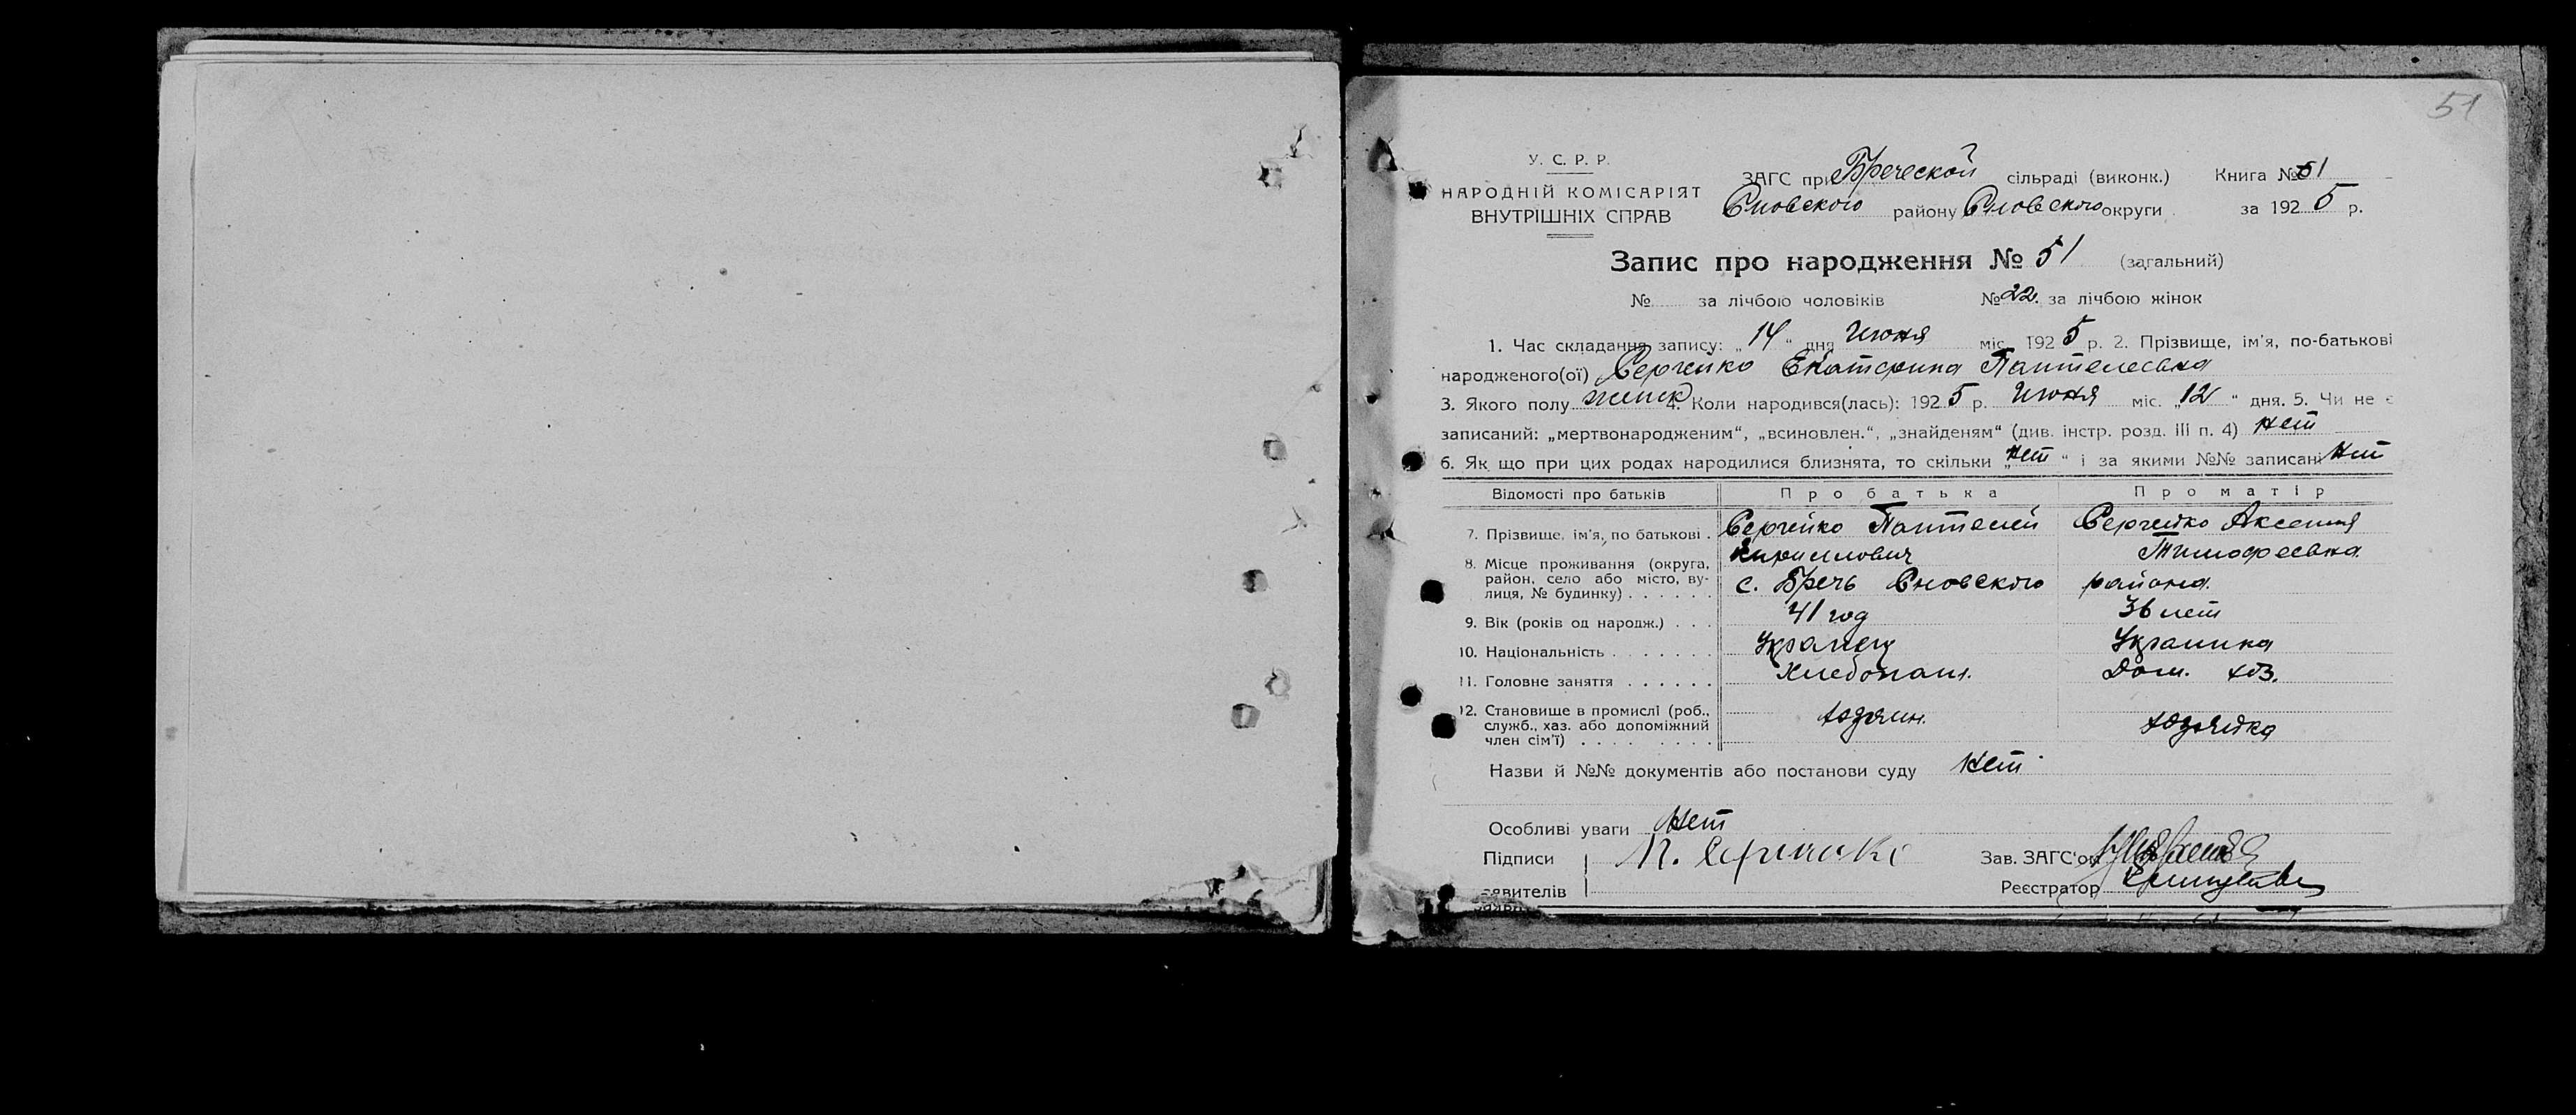 51
У. С. Р. Р.
НАРОДНІЙ КОМІСАРІЯТ
ВНУТРІШНІХ СПРАВ
ЗАГС при Бреческой сільраді (виконк.) Книга № 51
Сновского району Сновского округи за 1925 р.
Запис про народження № 51 (загальний)
№ за лічбою чоловіків № 22. за лічбою жінок
1. Час складання запису: „14“ дня Июня міс. 1925 р. 2. Прізвище, ім'я, по-батькові
народженого(ої) Сергейко Екатерина Пантелеевна
3. Якого полу женск 4. Коли народився(лась): 1925 р. Июня міс. „12“ дня. 5. Чи не є
записаний: „мертвонародженим“, „всиновлен.“, „знайденям“ (див. інстр. розд. III п. 4) нет
6. Як що при цих родах народилися близнята, то скільки „нет“ і за якими №№ записані нет
Відомості про батьків Про батька Про матір
7. Прізвище, ім'я, по батькові . Сергейко Пантелей Сергейко Аксения
Кириллович Тимофеевна
8. Місце проживання (округа,
район, село або місто, ву-
лиця, № будинку) . . . . . . с. Бречь Сновского района.
9. Вік (років од народж.) . . . 41 год 36 лет
10. Національність . . . . . . . Украинец Украинка
11. Головне заняття . . . . . . Хлебопаш. Дом. хоз.
12. Становище в промислі (роб.,
служб., хаз. або допоміжний
член сім'ї) . . . . . . . . хозяин. хозяйка
Назви й №№ документів або постанови суду нет
Особливі уваги нет
Підписи П. Сергейко Зав. ЗАГС'ом
заявителів Реєстратор